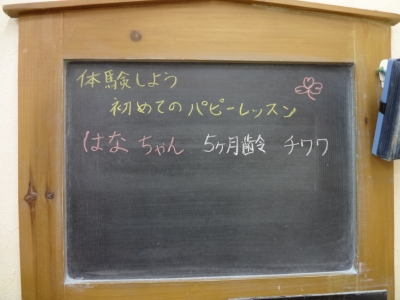 体験しよう
初めてのパピーレッスン
はなちゃん 5ヶ月齢 チワワ